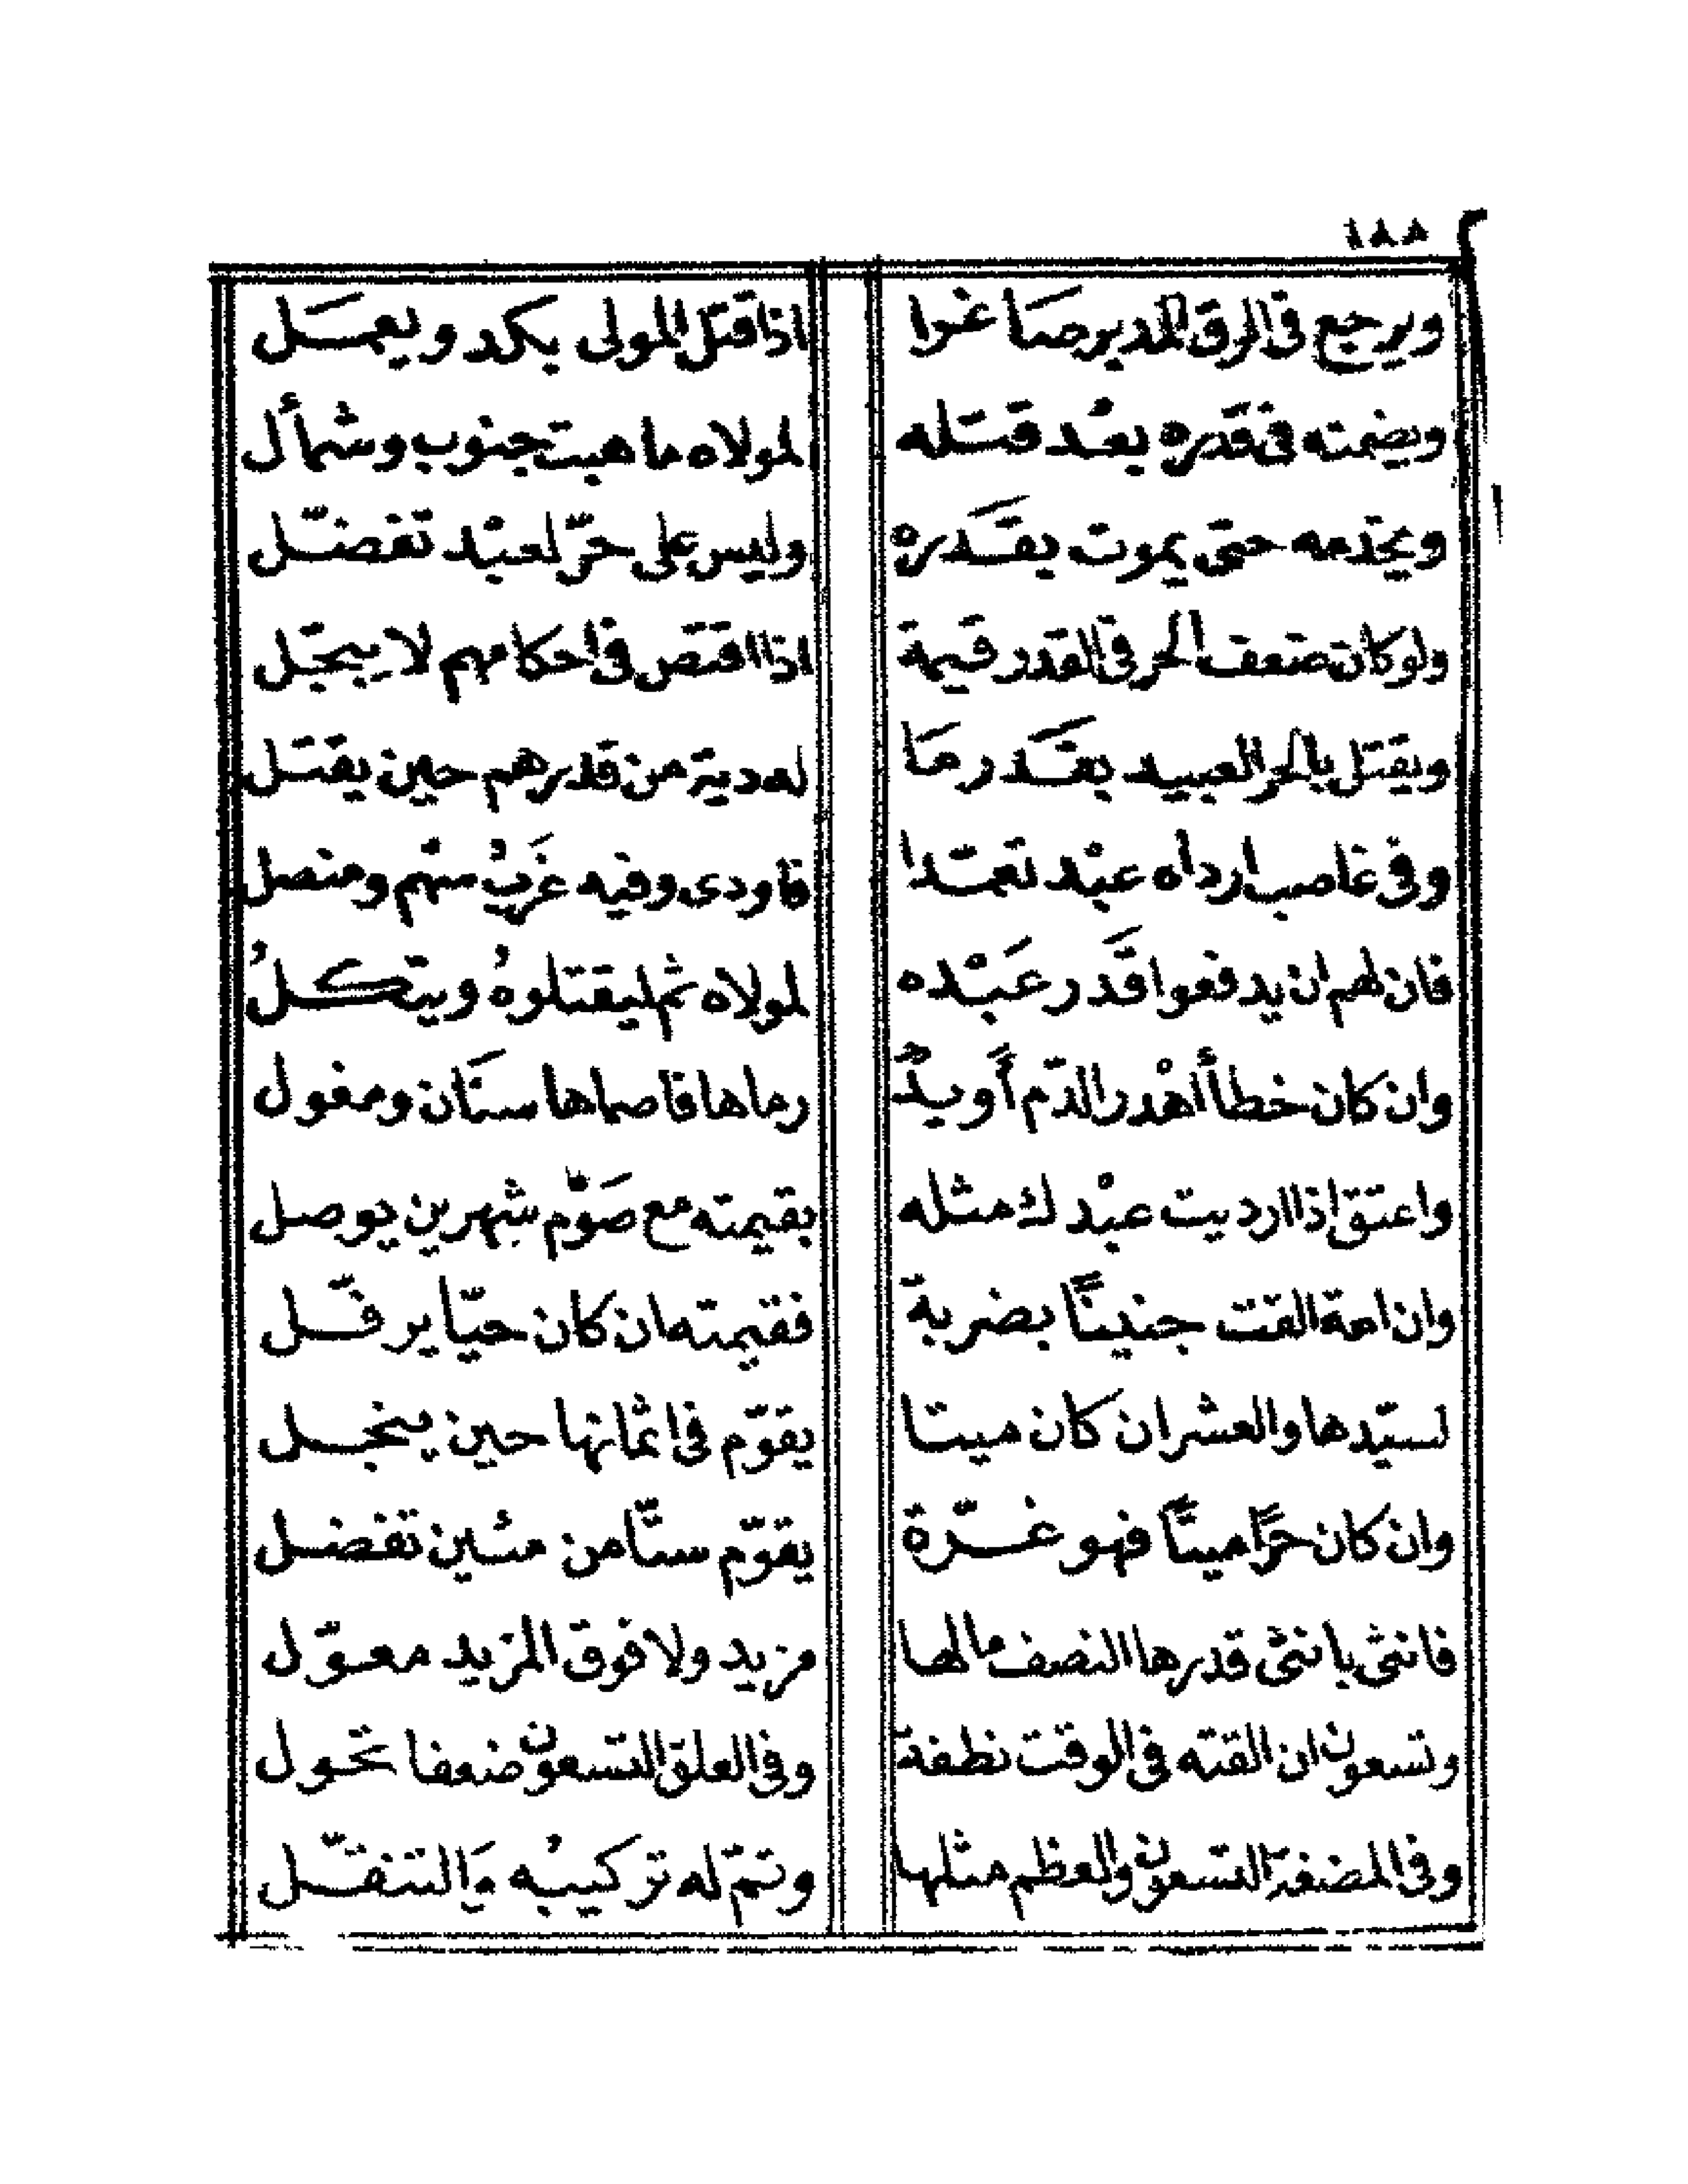 ١٨٨
ويرجع في الرق المدبر صاغرا اذا قتل المولى بكد ويعمَل
ويضمنه في قدره بعْد قتله لمولاه ما هبت جنوب وشمأل
ويخدمه حتى يموت بقَدره وليس على حرّ لعبْد تفضّل
ولو كان ضعف الحر في القدر قيمة اذا اقتص في احكامهم لا يبجّل
ويقتل بالحر العبيد بقَدر مَا له دية من قدرهم حين يقتل
وفي غاصب ارداه عبْد تعمّدا فاودى وفيه غَربُ سهم ومنصل
فان لهم ان يدفعوا قَدر عَبْده لمولاه ثم ليقتلوهُ ويتكلُ
وان كان خطأ أهْدر الدّم أو يدٌ رماها فاصماها سنَان ومغول
واعتق اذا ارديت عبْدك مثله بقيمته مع صَوْم شهرين يوصل
وان امة القت جنينًا بضربة فقيمته ان كان حيّا يرفّل
لسيّدها والعشر ان كان ميتا يقوّم في اثمانها حين ينجل
وان كان حرًّا ميتًا فهو غرّة يقوّم ستّا من مئين تفضل
فانثى بانثى قدرها النصف ما لها مزيد ولا فوق المزيد معوّل
وتسعون ان القته في الوقت نطفة وفي العلق التسعون ضعفا تحول
وفي المضغة التسعون والعظم مثلها وتمّ له تركيبُه وَالتنقّل